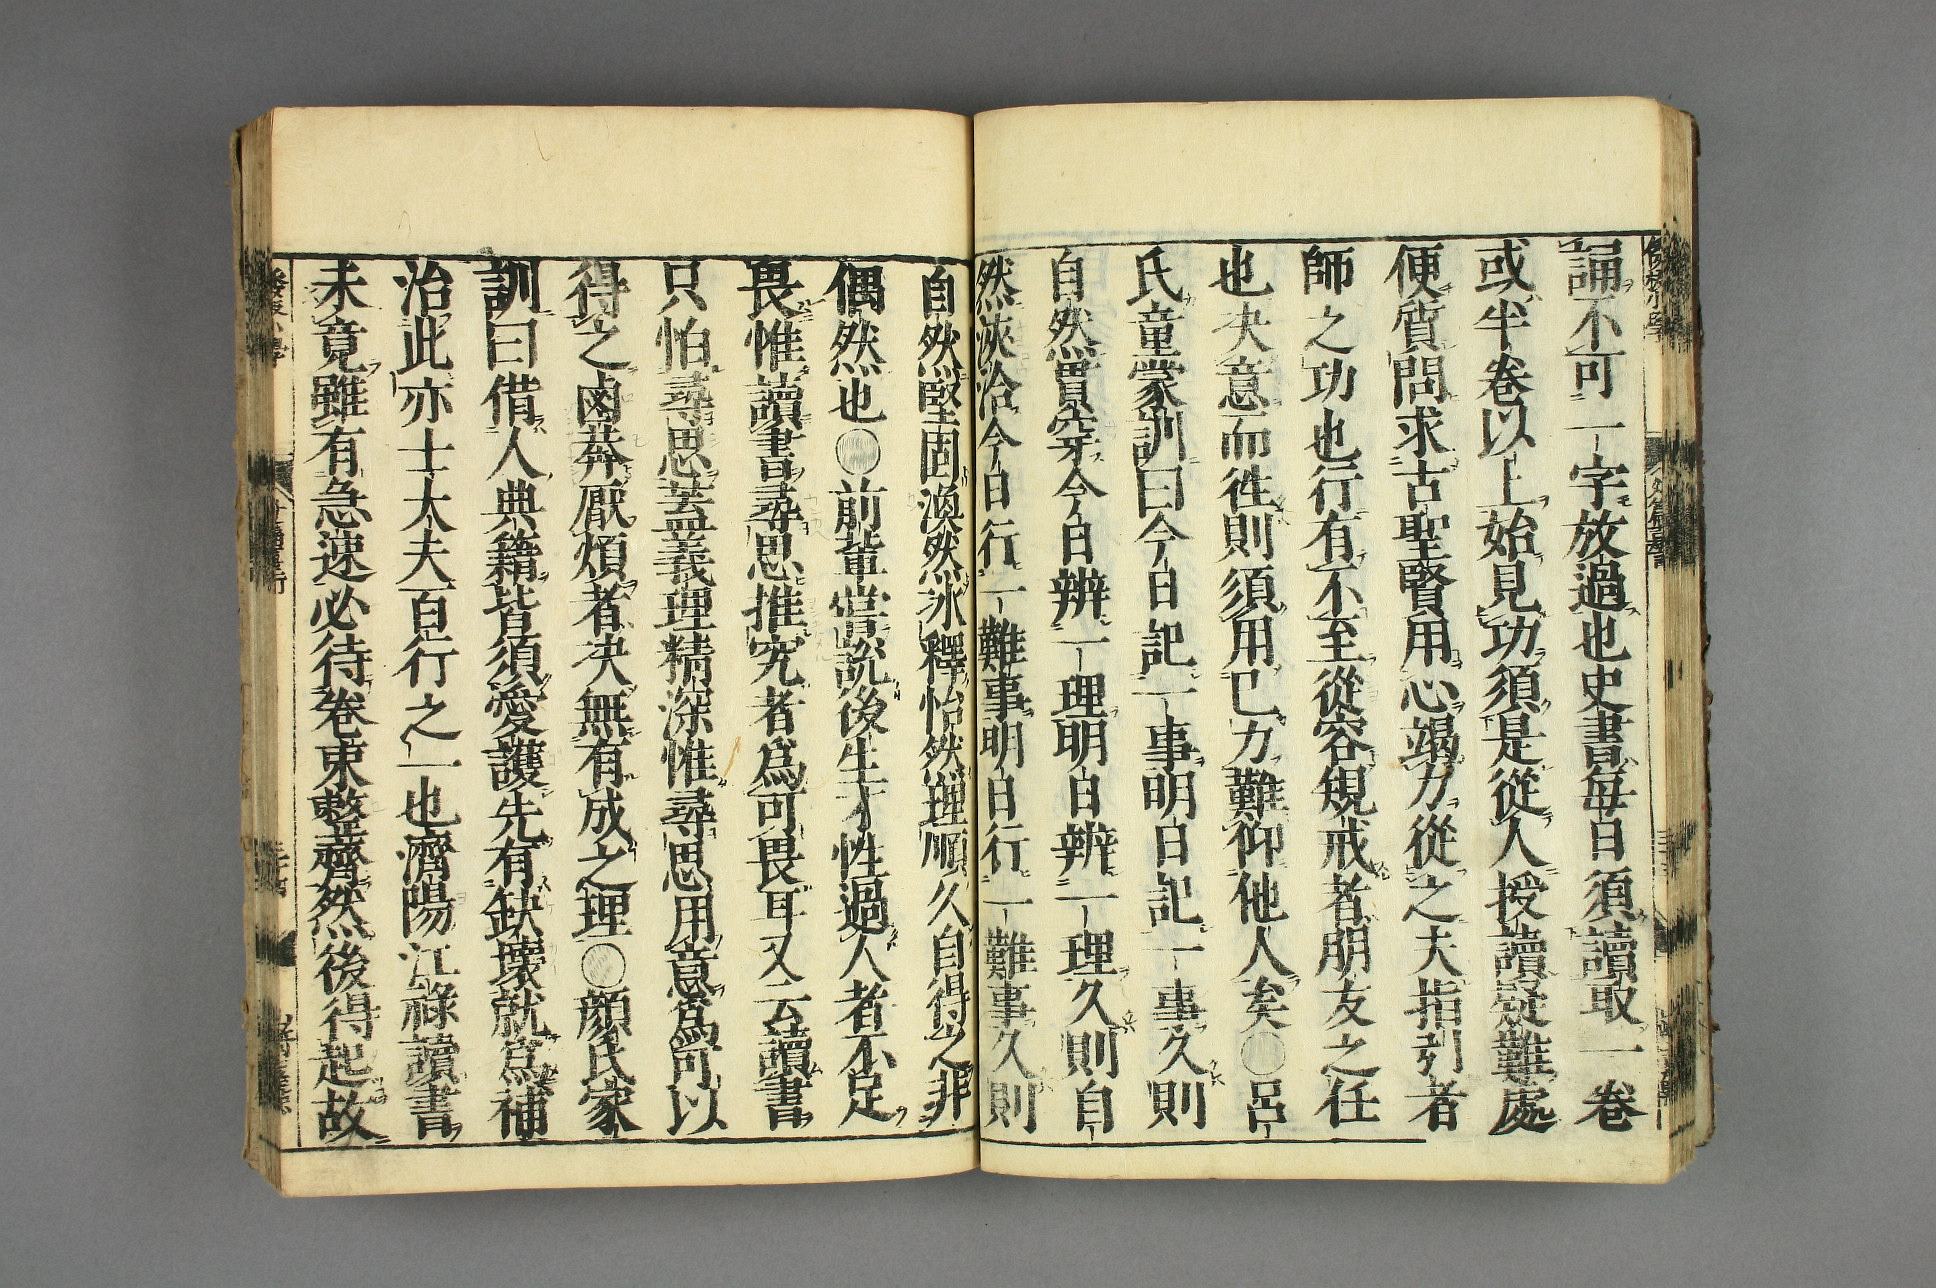 誦不可一字放過也史書每日須讀取一卷
或半卷以上始見功須是從人授讀疑難處
便質問求古聖賢用心竭力從之夫指引者
師之功也行有不至從容規戒者朋友之任
也決意而徃則須用己力難仰他人矣○呂
氏童蒙訓曰今日記一事明日記一事久則
自然貫穿今日辨一理明日辨一理久則自
然浹洽今日行一難事明日行一難事久則
自然堅固渙然冰釋怡然理順久自得之非
偶然也○前輩嘗說後生才性過人者不足
畏惟讀書尋思推究者爲可畏耳又云讀書
只怕尋思葢義理精深惟尋思用意爲可以
得之鹵莽厭煩者決無有成之理○顔氏家
訓曰借人典籍皆須愛護先有缺壞就爲補
治此亦士大夫百行之一也濟陽江祿讀書
未竟雖有急速必待卷束整齊然後得起故